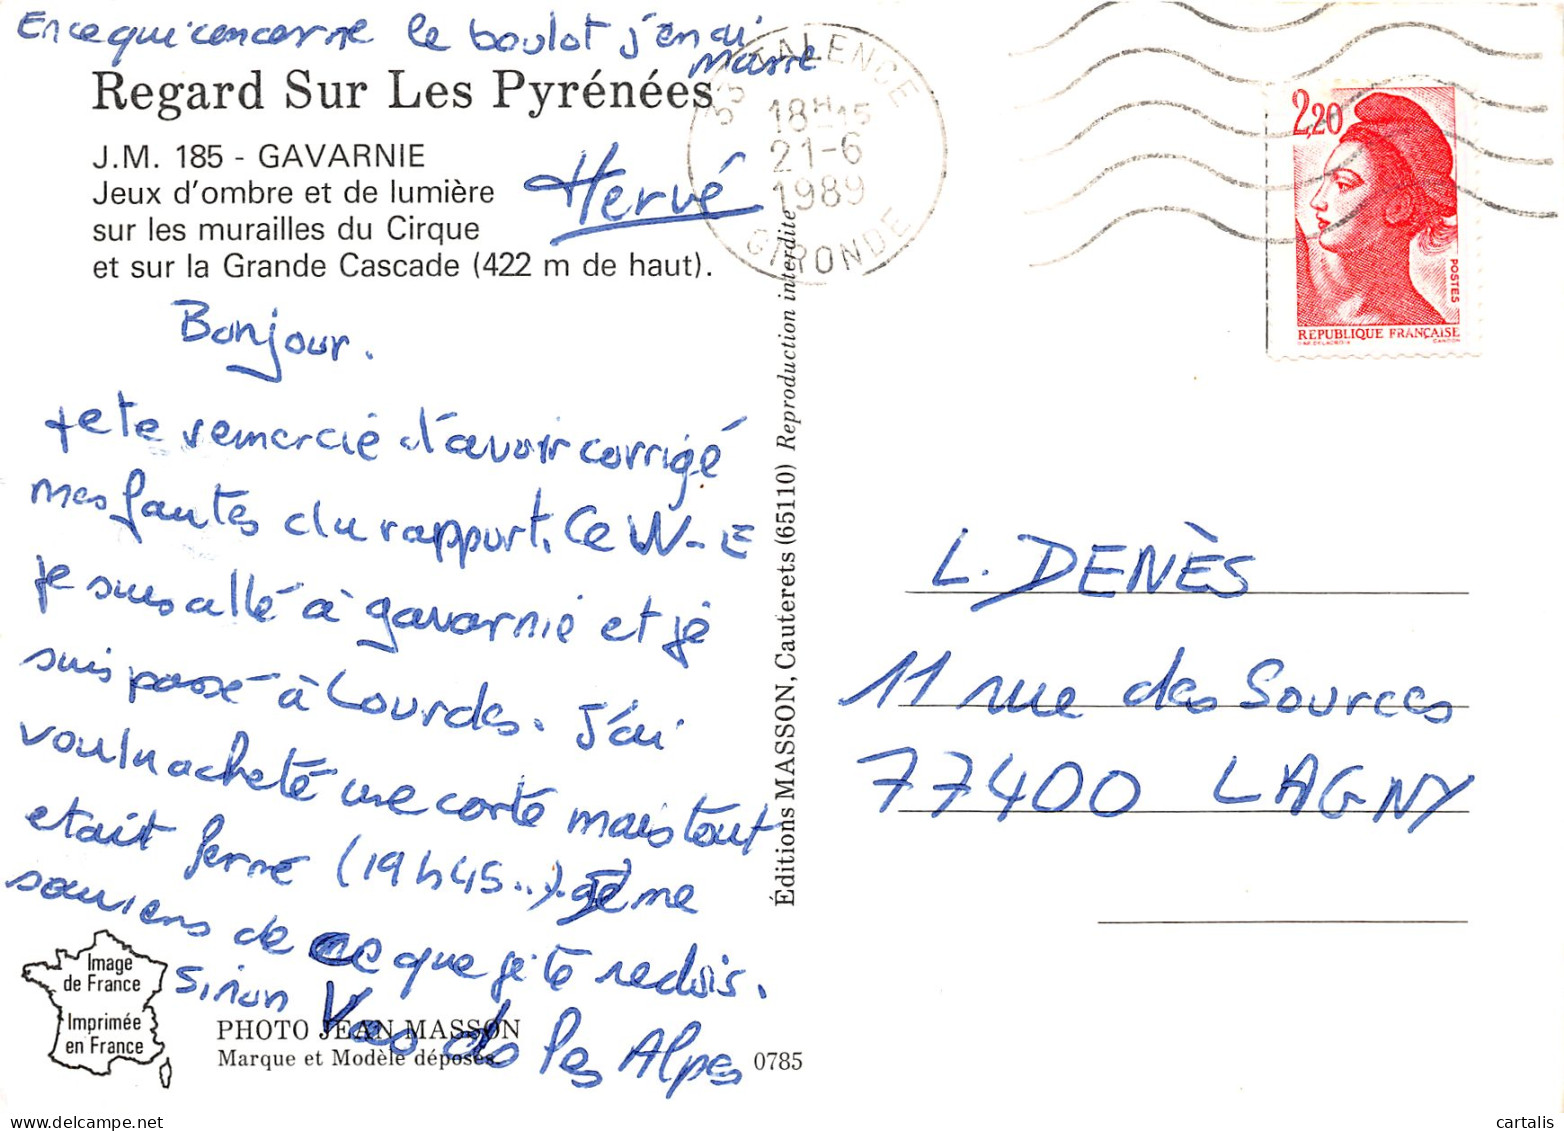 En ce qui concerne le boulot j'en ai
marre
Regard Sur Les Pyrénées
J.M. 185 - GAVARNIE
Jeux d'ombre et de lumière
sur les murailles du Cirque
et sur la Grande Cascade (422 m de haut).
Hervé
33 TALENCE
18H15
21-6
1989
GIRONDE
2,20
POSTES
REPUBLIQUE FRANÇAISE
Bonjour.
Je te remercie d'avoir corrigé
mes fautes du rapport. Ce W-E
je suis allé à gavarnie et je
suis passé à Lourdes. J'ai
voulu acheté une carte mais tout
etait fermé (19h45..). Je me
souviens de ce que je te redois.
Sinon
les Alpes
Image
de France
Imprimée
en France
PHOTO JEAN MASSON
Marque et Modèle déposés
0785
Éditions MASSON, Cauterets (65110) Reproduction interdite
L. DENÈS
11 rue des Sources
77400 LAGNY
cartalis
delcampe.net